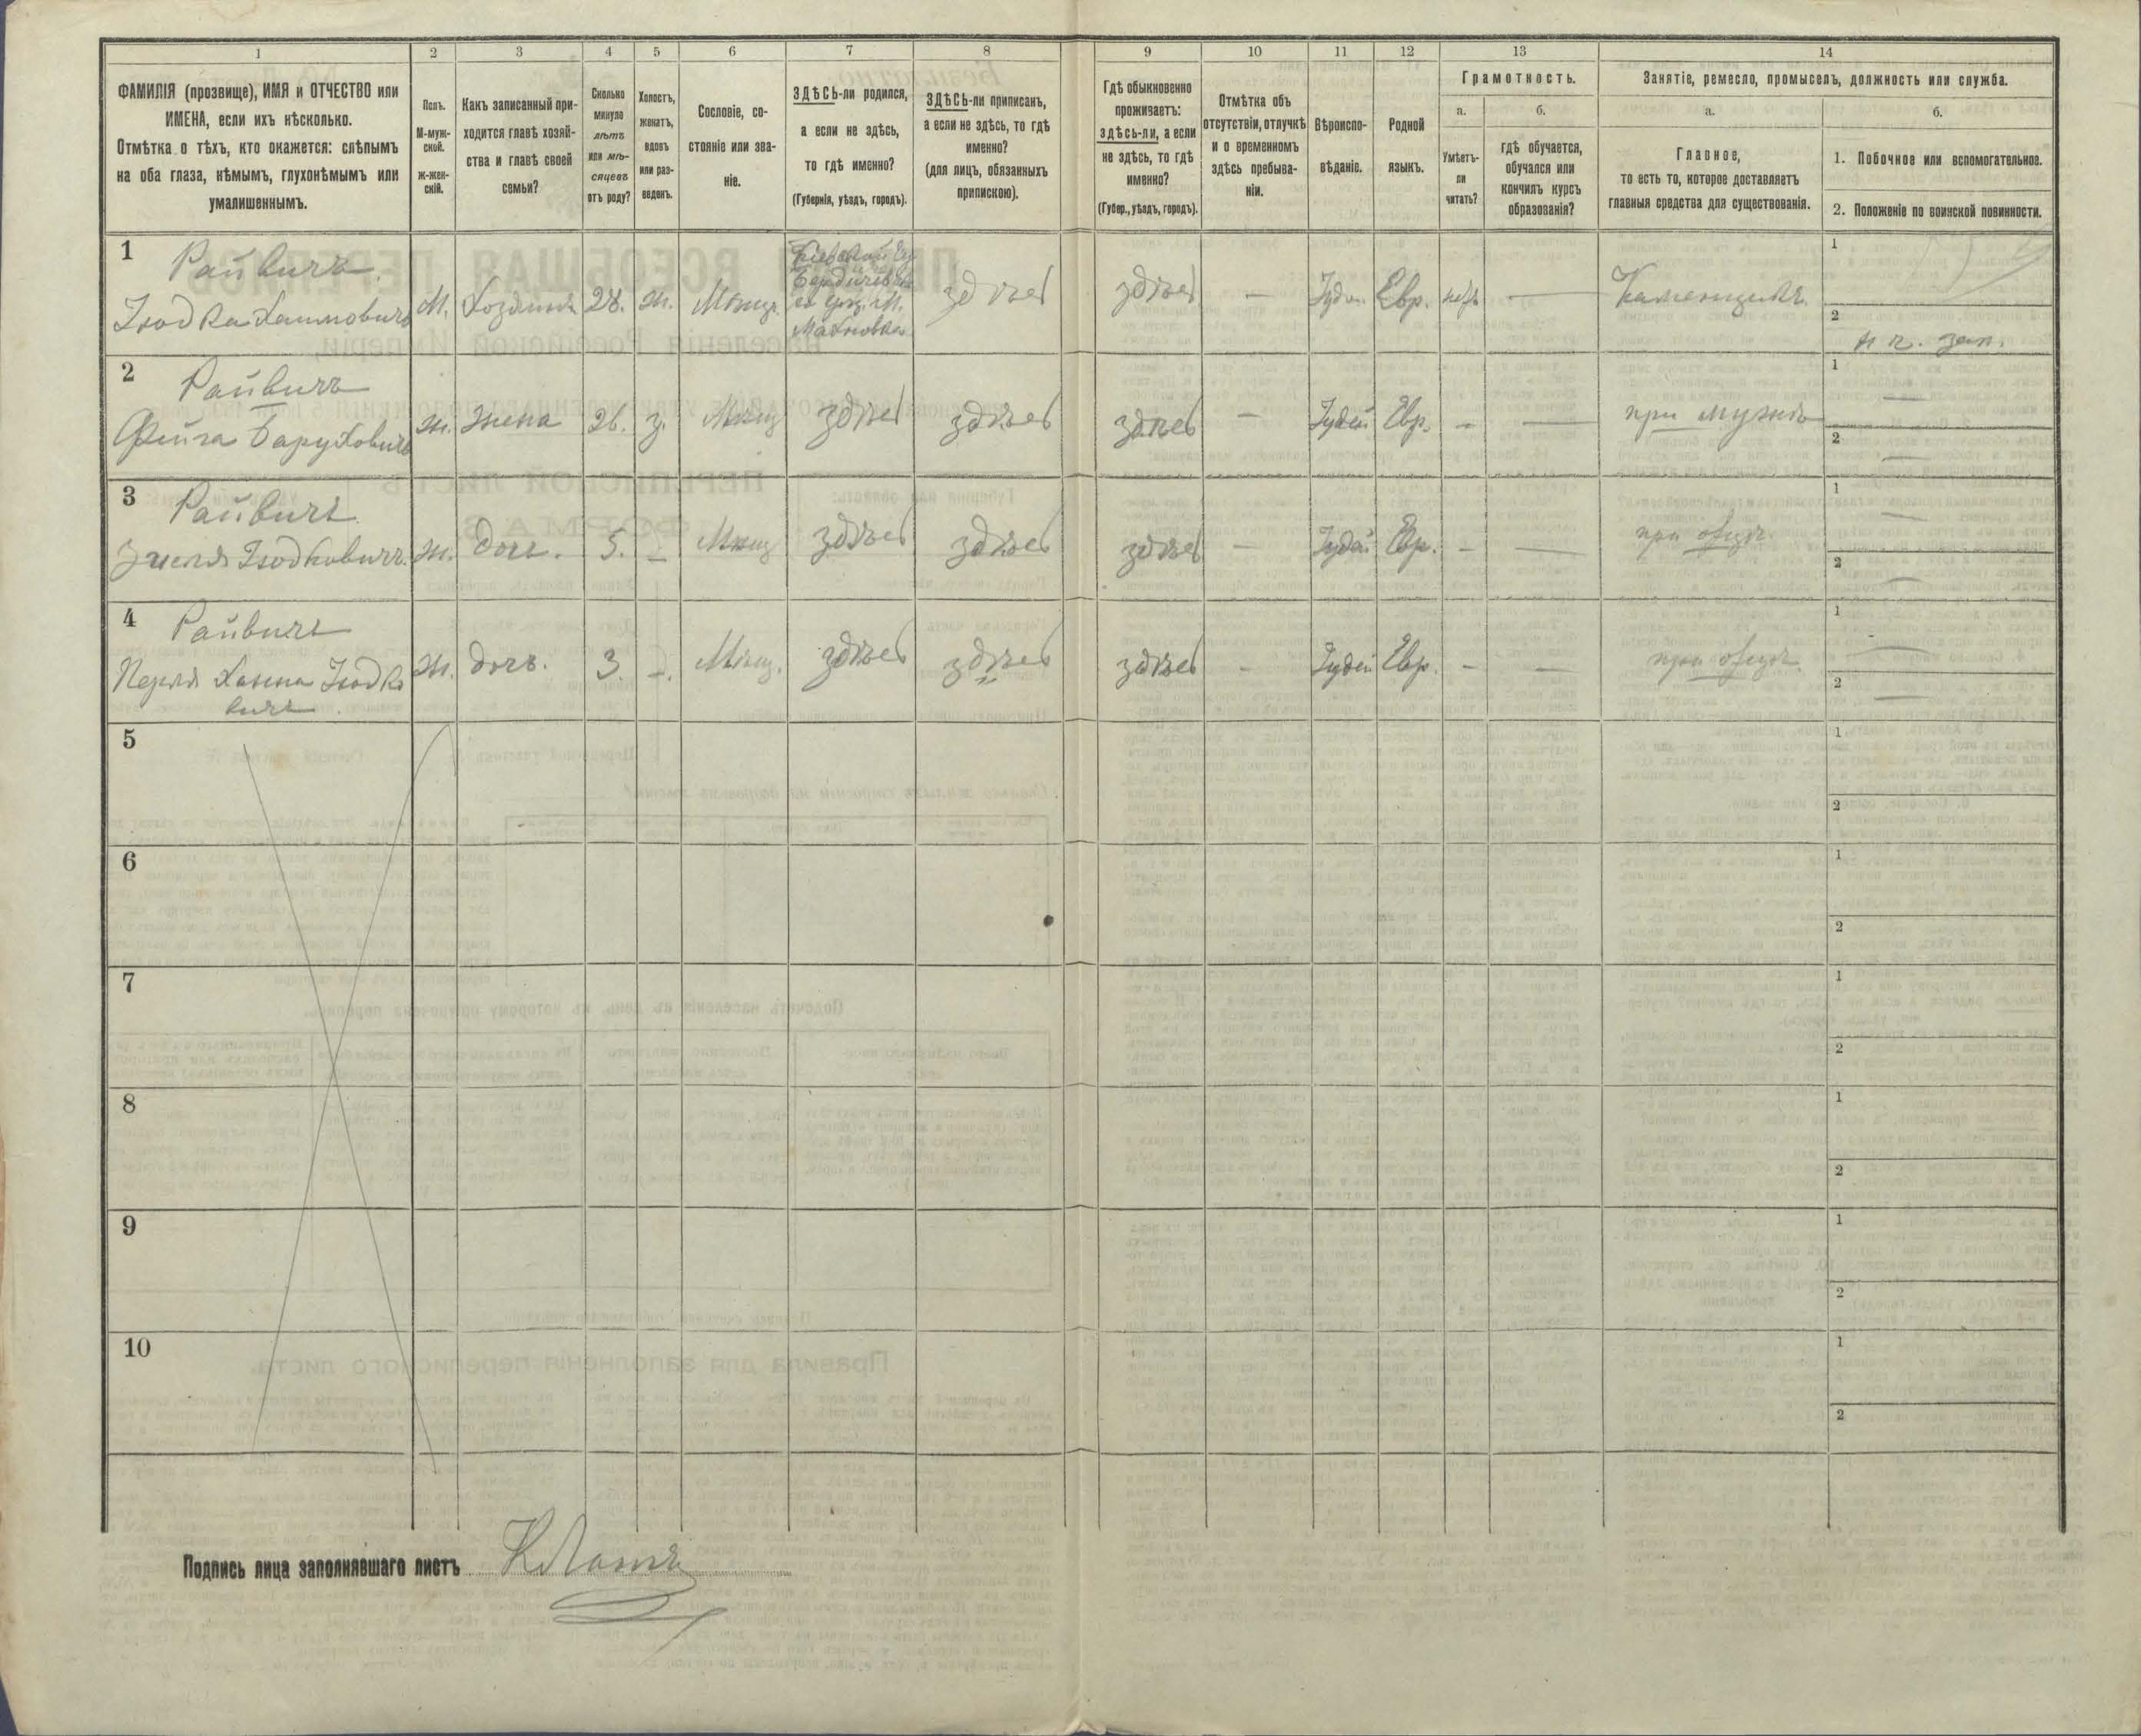 1
2
3
4
5
6
7
8
9
10
11
12
13
14
ФАМИЛІЯ (прозвище), ИМЯ и ОТЧЕСТВО или
ИМЕНА, если ихъ нѣсколько.
Отмѣтка о тѣхъ, кто окажется: слѣпымъ
на оба глаза, нѣмымъ, глухонѣмымъ или
умалишеннымъ.
Полъ.
М-муж-
ской.
ж-жен-
скій.
Какъ записанный при-
ходится главѣ хозяй-
ства и главѣ своей
семьи?
Сколько
минуло
лѣтъ
или мѣ-
сяцевъ
отъ роду?
Холостъ,
женатъ,
вдовъ
или раз-
веденъ.
Сословіе, со-
стояніе или зва-
ніе.
ЗДѢСЬ-ли родился,
а если не здѣсь,
то гдѣ именно?
(Губернія, уѣздъ, городъ).
ЗДѢСЬ-ли приписанъ,
а если не здѣсь, то гдѣ
именно?
(для лицъ, обязанныхъ
припискою).
Гдѣ обыкновенно
проживаетъ:
здѣсь-ли, а если
не здѣсь, то гдѣ
именно?
(Губер., уѣздъ, городъ).
Отмѣтка объ
отсутствіи, отлучкѣ
и о временномъ
здѣсь пребыва-
ніи.
Вѣроиспо-
вѣданіе.
Родной
языкъ.
Грамотность.
а.
Умѣетъ-
ли
читать?
б.
гдѣ обучается,
обучался или
кончилъ курсъ
образованія?
Занятіе, ремесло, промыселъ, должность или служба.
а.
Главное,
то есть то, которое доставляетъ
главныя средства для существованія.
б.
1. Побочное или вспомогательное.
2. Положеніе по воинской повинности.
1
Райвичъ
Іюдка Хаимовичъ
М.
Хозяинъ
28.
ж.
Мѣщ.
Кіевской Гу
Бердичевск
аго уѣз. М.
Махновка
здѣсь
здѣсь
—
Іудей
Евр.
нетъ
—
Каменщикъ.
1
2
2
Райвичъ
Фейга Баруховичъ
ж.
жена
26.
з.
Мѣщ
здѣсь
здѣсь
здѣсь
—
Іудей
Евр.
-
—
при мужѣ
1
—
2
—
3
Райвичъ
Іюдковичъ.
ж.
дочь.
5.
-
Мѣщ
здѣсь
здѣсь
здѣсь
—
Іудей
Евр.
-
—
при отцѣ.
1
—
2
—
4
Райвичъ
Перля Ханна Іюдко
вичъ.
ж.
дочь.
3.
-.
Мѣщ.
здѣсь
здѣсь
здѣсь
-
Іудей
Евр.
-
—
при отцѣ.
1
—
2
—
5
1
2
6
1
2
7
1
2
8
1
2
9
1
2
10
1
2
Подпись лица заполнявшаго листъ